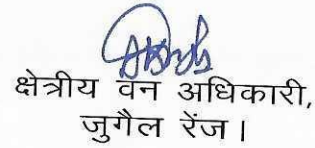 क्षेत्रीय वन अधिकारी,
जुगैल रेंज।